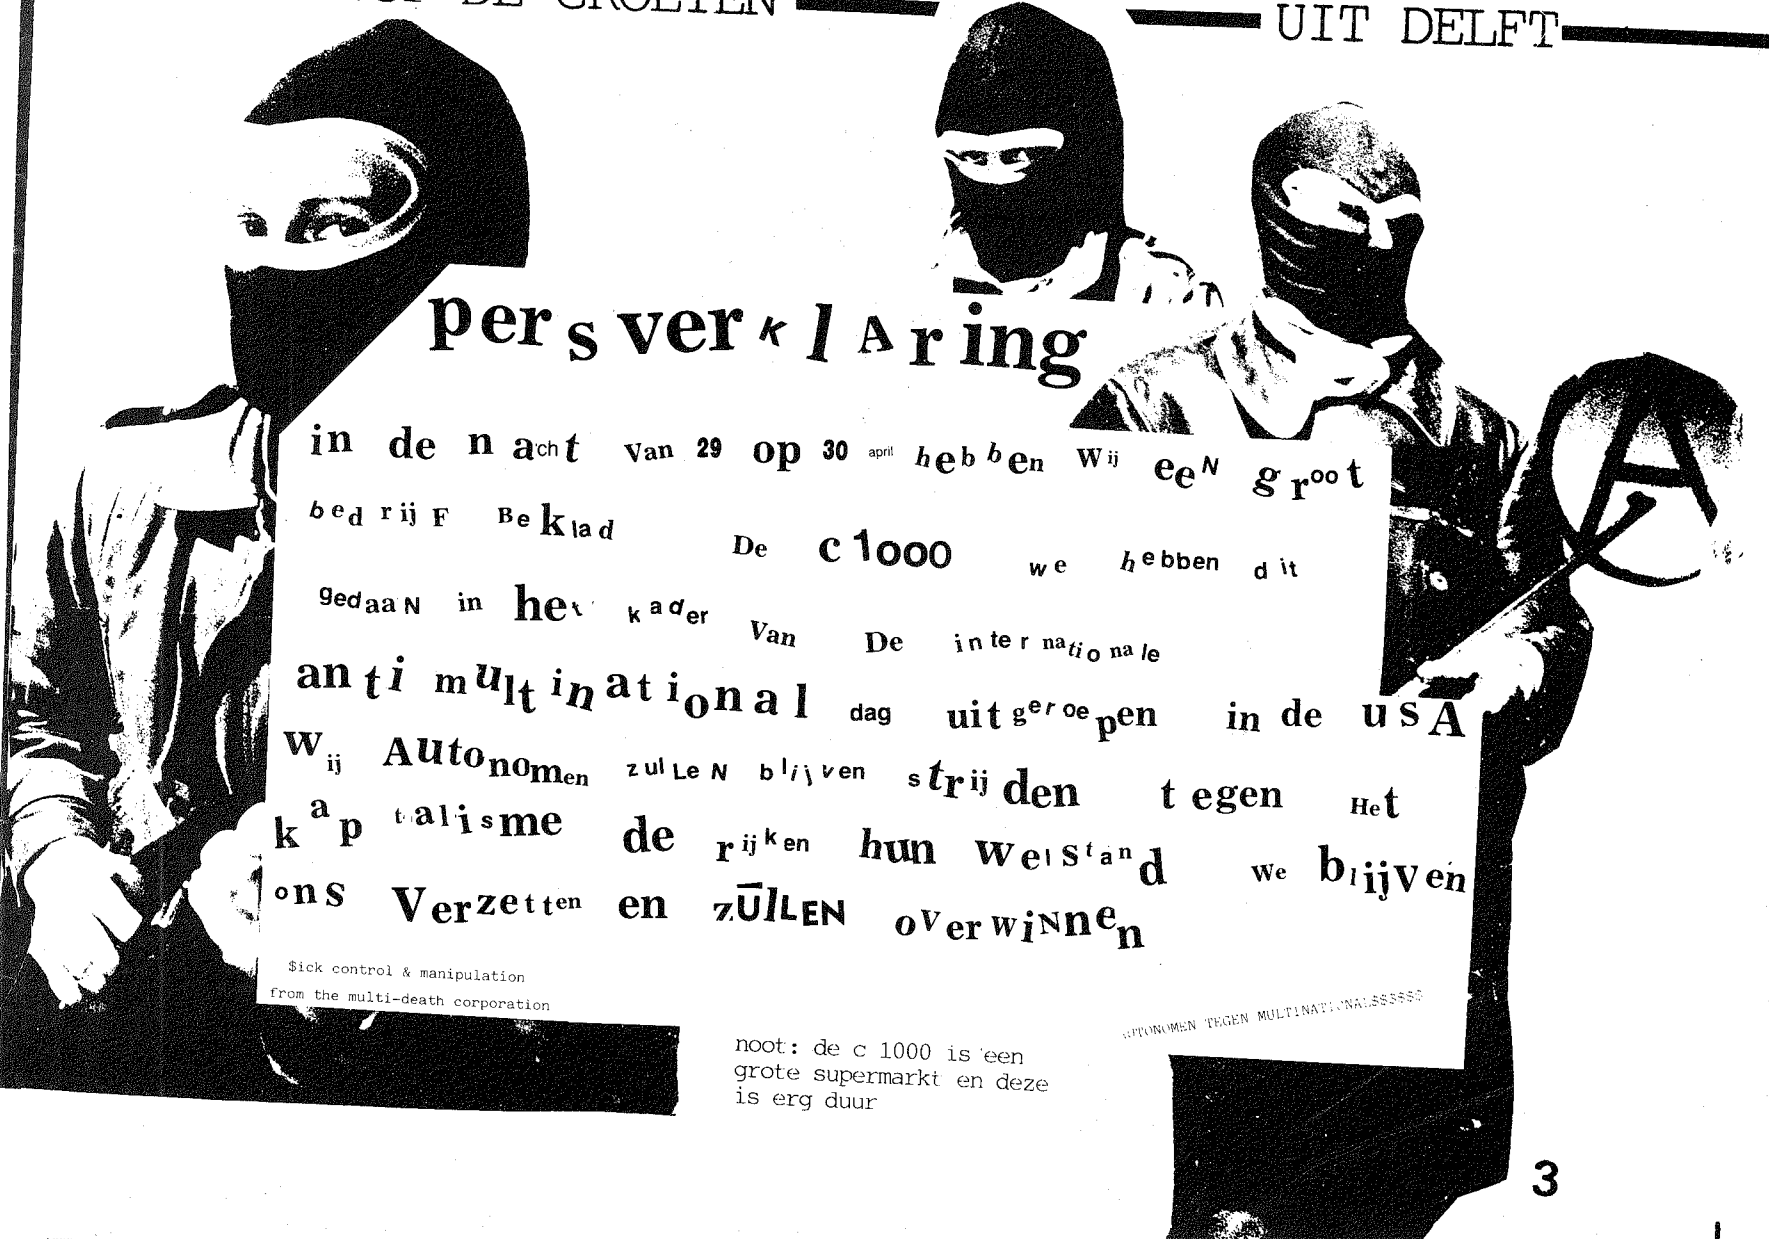 DE GROETEN UIT DELFT
persverklAring
in de nacht Van 29 op 30 april hebben Wij eeN groot
bedrijF BekladDe c1000 we hebben dit
gedaaN in het kader Van De internationale
anti multinational dag uitgeroepen in de usA
Wij AUtonomen zulLeN blijven strijden tegen Het
kapitalisme de rijken hun welStand We blijVen
ons Verzetten en zŪlLEN oVerwiNnen
$ick control & manipulation
from the multi-death corporation
AUTONOMEN TEGEN MULTINATIONAL$$$$$$
noot: de c 1000 is een
grote supermarkt en deze
is erg duur
3
A